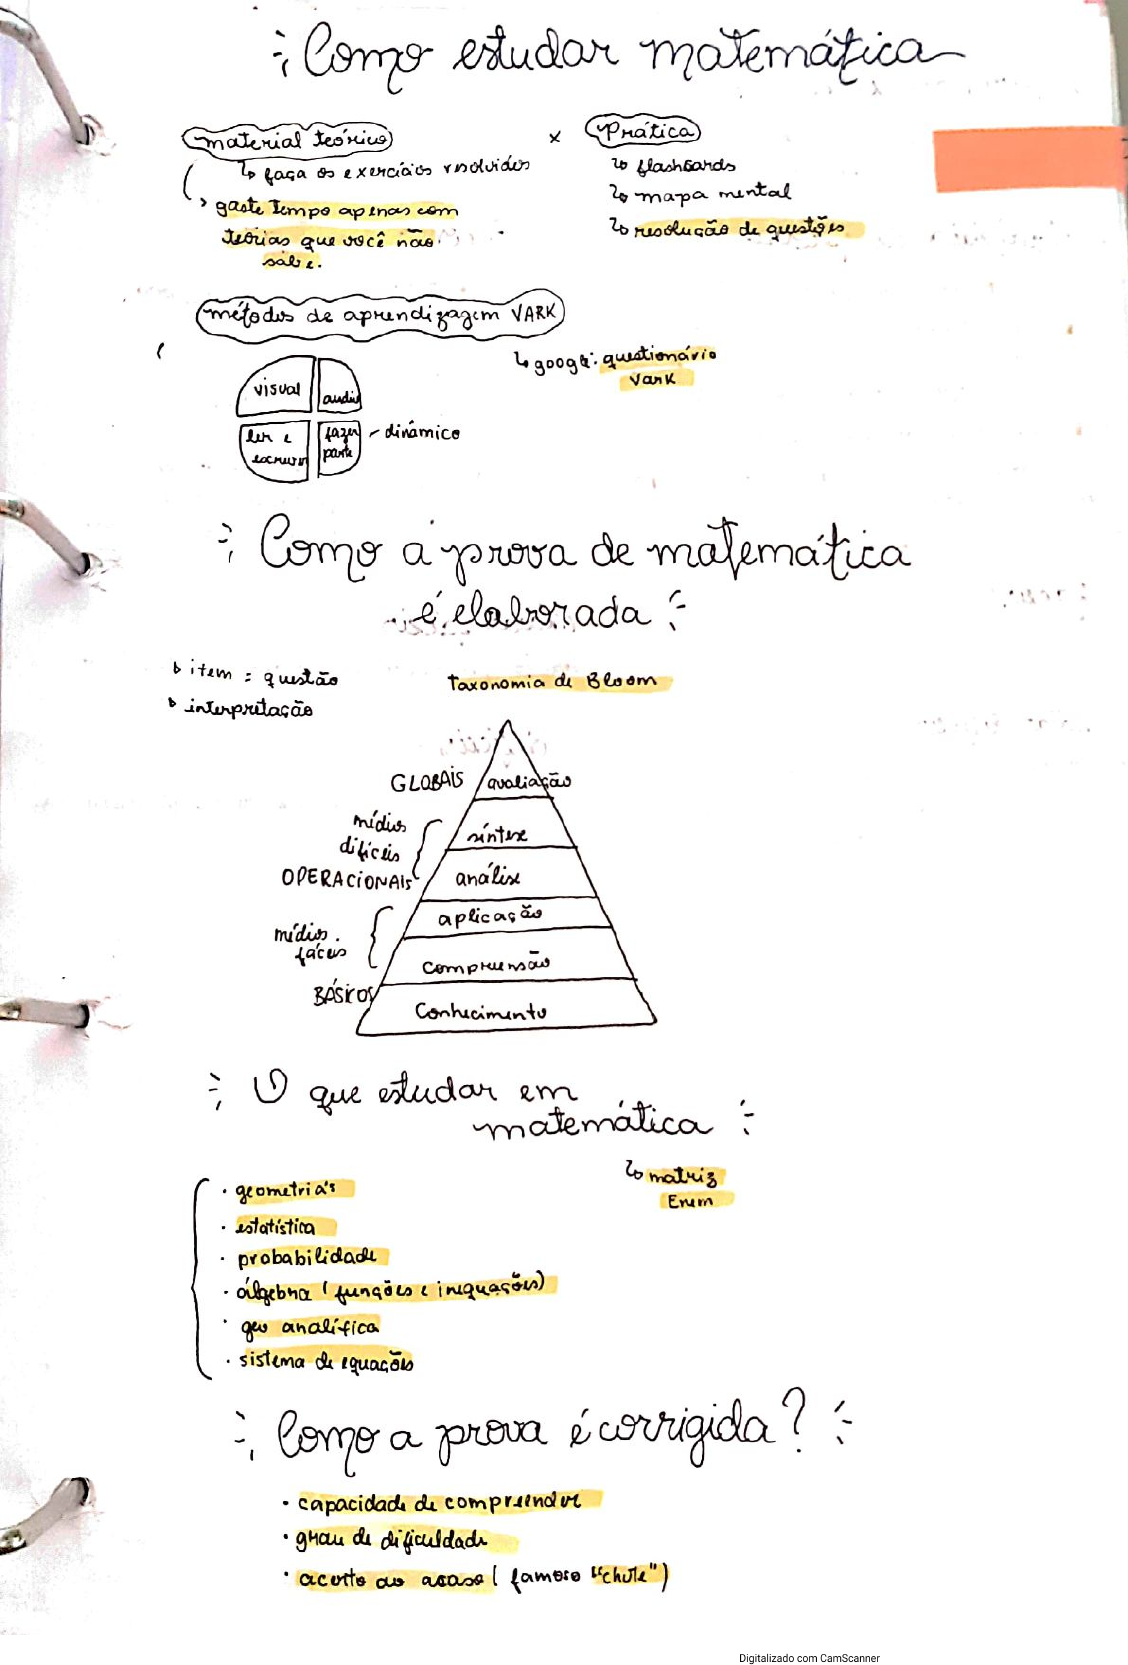 Como estudar matemática
material teórico x Prática
faça os exercícios resolvidos
gaste tempo apenas com
teorias que você não
sabe.
flashcards
mapa mental
resolução de questões
métodos de aprendizagem VARK
google: questionário
Vark
visual
audio
ler e
escrever
fazer
parte
dinâmico
Como a prova de matemática
é elaborada
item = questão
interpretação
Taxonomia de Bloom
GLOBAIS
avaliação
médios
difíceis
síntese
OPERACIONAIS
análise
aplicação
médios
fáceis
compreensão
BÁSICOS
Conhecimento
O que estudar em
matemática
matriz
Enem
• geometria's
• estatística
• probabilidade
• álgebra (funções e inequações)
• geo analítica
• sistema de equações
Como a prova é corrigida?
• capacidade de compreender
• grau de dificuldade
• acerto ao acaso (famoso "chute")
Digitalizado com CamScanner